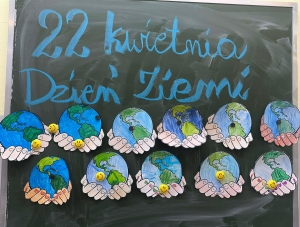 22 kwietnia
Dzień Ziemi